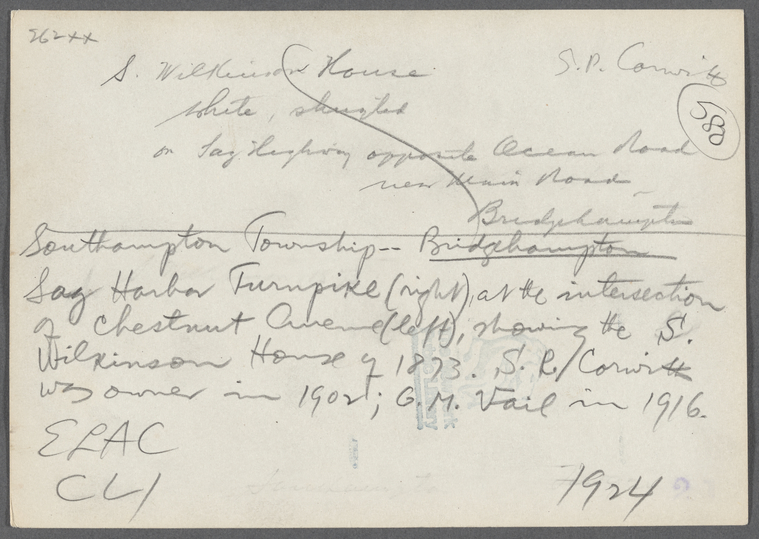 262++
S. Wilkinson House
S.P. Corwith
588
White, shingled
on Sag Highway opposite Ocean Road
near Main Road
Bridgehampton
Southampton Township-- Bridgehampton
Sag Harbor Turnpike (right), at the intersection
of Chestnut Avenue (left), showing the S.
Wilkinson House of 1873. S. R. Corwith
was owner in 1902; G.M. Vail in 1916.
ELAC
CLI
1924